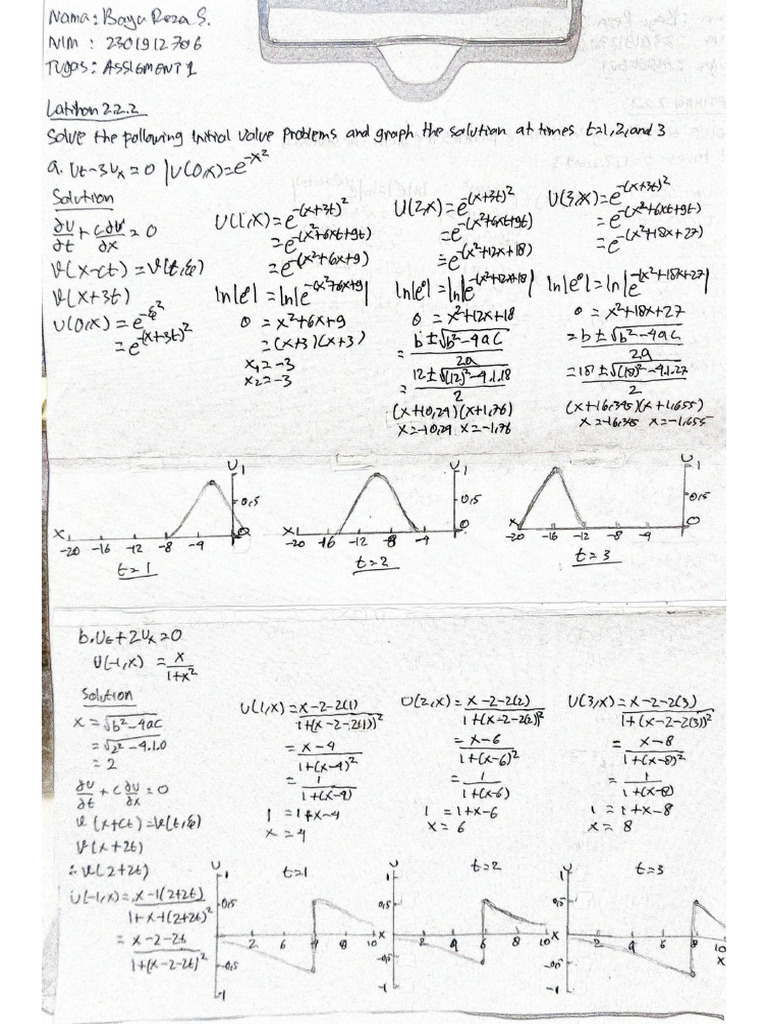 Nama : Bayu Reza S.
NIM : 2301912706
Tugas : ASSIEMENT 1
Latihan 2.2.2
Solve the following initial value problems and graph the solution at times t=1, 2, and 3
a. Ut-3Ux=0 | U(0,x)=e^-x²
Solution
∂U/∂t + c∂U/∂x = 0
v(x-ct) = v(t,ξ)
v(x+3t)
U(0,x) = e^-ξ²
= e^-(x+3t)²
U(1,x) = e^-(x+3t)²
= e^-(x²+6xt+9t)
= e^-(x²+6x+9)
ln|e⁰| = ln|e^-(x²+6x+9)|
0 = x²+6x+9
= (x+3)(x+3)
x₁ = -3
x₂ = -3
U(2,x) = e^-(x+3t)²
= e^-(x²+6xt+9t)
= e^-(x²+12x+18)
ln|e⁰| = ln|e^-(x²+12x+18)|
0 = x²+12x+18
= b±√b²-4ac / 2a
= 12±√(12)²-4.1.18 / 2
(x+10,24)(x+1,76)
x=-10,24 x=-1,76
U(3,x) = e^-(x+3t)²
= e^-(x²+6xt+9t)
= e^-(x²+18x+27)
ln|e⁰| = ln|e^-(x²+18x+27)|
0 = x²+18x+27
= b±√b²-4ac / 2a
= 18±√(18)²-4.1.27 / 2
(x+16,345)(x+1,655)
x=-16,345 x=-1,655
U 1
0,5
0
x -20 -16 -12 -8 -4
t=1
U 1
0,5
0
x -20 -16 -12 -8 -4
t=2
U 1
0,5
0
x -20 -16 -12 -8 -4
t=3
b. Ut+2Ux=0
U(-1,x) = x / 1+x²
Solution
x = √b²-4ac
= √2²-4.1.0
= 2
∂U/∂t + c∂U/∂x = 0
v(x+ct) = v(t,ξ)
v(x+2t)
∴ v(2+2t)
U(-1,x) = x-1(2+2t) / 1+x-1(2+2t)²
= x-2-2t / 1+(x-2-2t)²
U(1,x) = x-2-2(1) / 1+(x-2-2(1))²
= x-4 / 1+(x-4)²
= 1 / 1+(x-4)
1 = 1+x-4
x = 4
U(2,x) = x-2-2(2) / 1+(x-2-2(2))²
= x-6 / 1+(x-6)²
= 1 / 1+(x-6)
1 = 1+x-6
x = 6
U(3,x) = x-2-2(3) / 1+(x-2-2(3))²
= x-8 / 1+(x-8)²
= 1 / 1+(x-8)
1 = 1+x-8
x = 8
U t=1
1
0,5
2 6 10 x
-0,5
-1
U t=2
1
0,5
2 4 6 8 10 x
-0,5
-1
U t=3
1
0,5
2 4 6 8 10
x
-0,5
-1